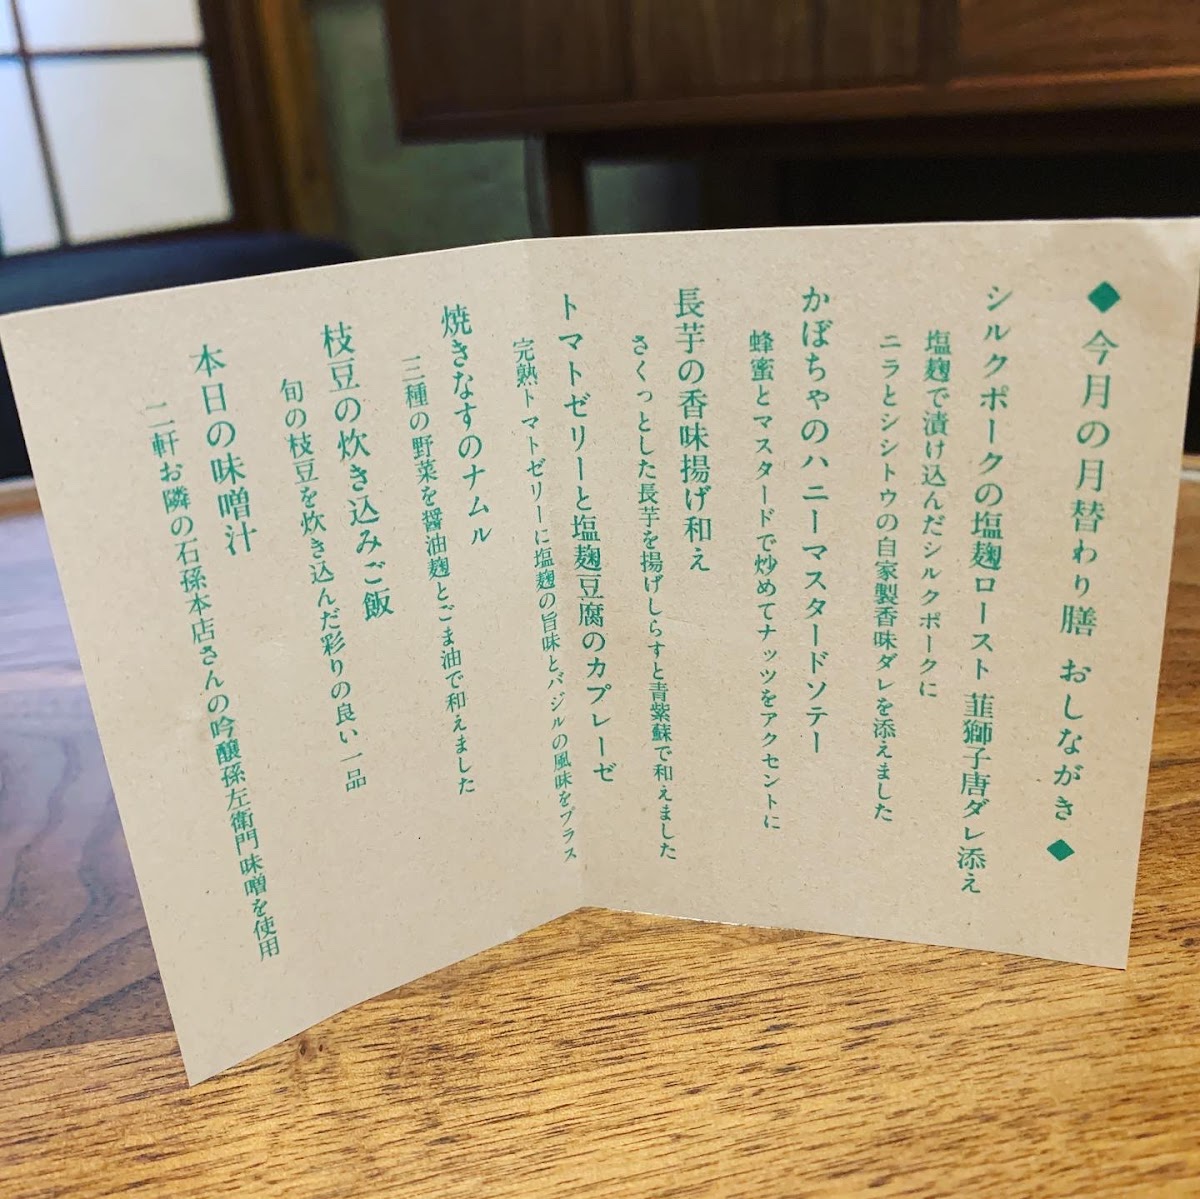 ◆今月の月替わり膳 おしながき◆
シルクポークの塩麹ロースト 韮獅子唐ダレ添え
塩麹で漬け込んだシルクポークに
ニラとシシトウの自家製香味ダレを添えました
かぼちゃのハニーマスタードソテー
蜂蜜とマスタードで炒めてナッツをアクセントに
長芋の香味揚げ和え
さくっとした長芋を揚げしらすと青紫蘇で和えました
トマトゼリーと塩麹豆腐のカプレーゼ
完熟トマトゼリーに塩麹の旨味とバジルの風味をプラス
焼きなすのナムル
三種の野菜を醤油麹とごま油で和えました
枝豆の炊き込みご飯
旬の枝豆を炊き込んだ彩りの良い一品
本日の味噌汁
二軒お隣の石孫本店さんの吟醸孫左衛門味噌を使用